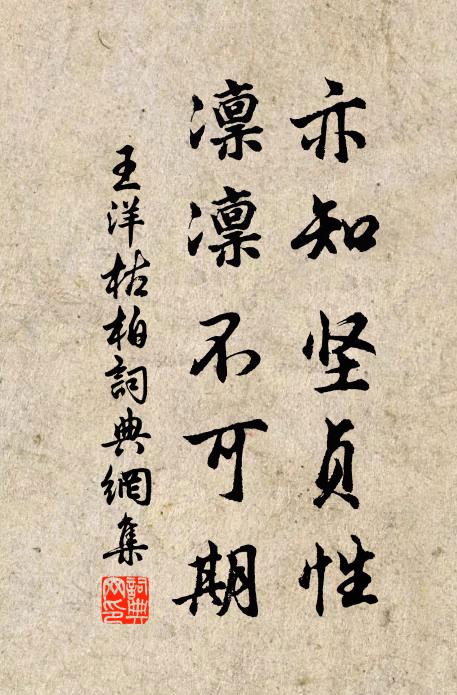 亦知坚贞性
凛凛不可期
王洋枯柏詞典網集
詞典网印